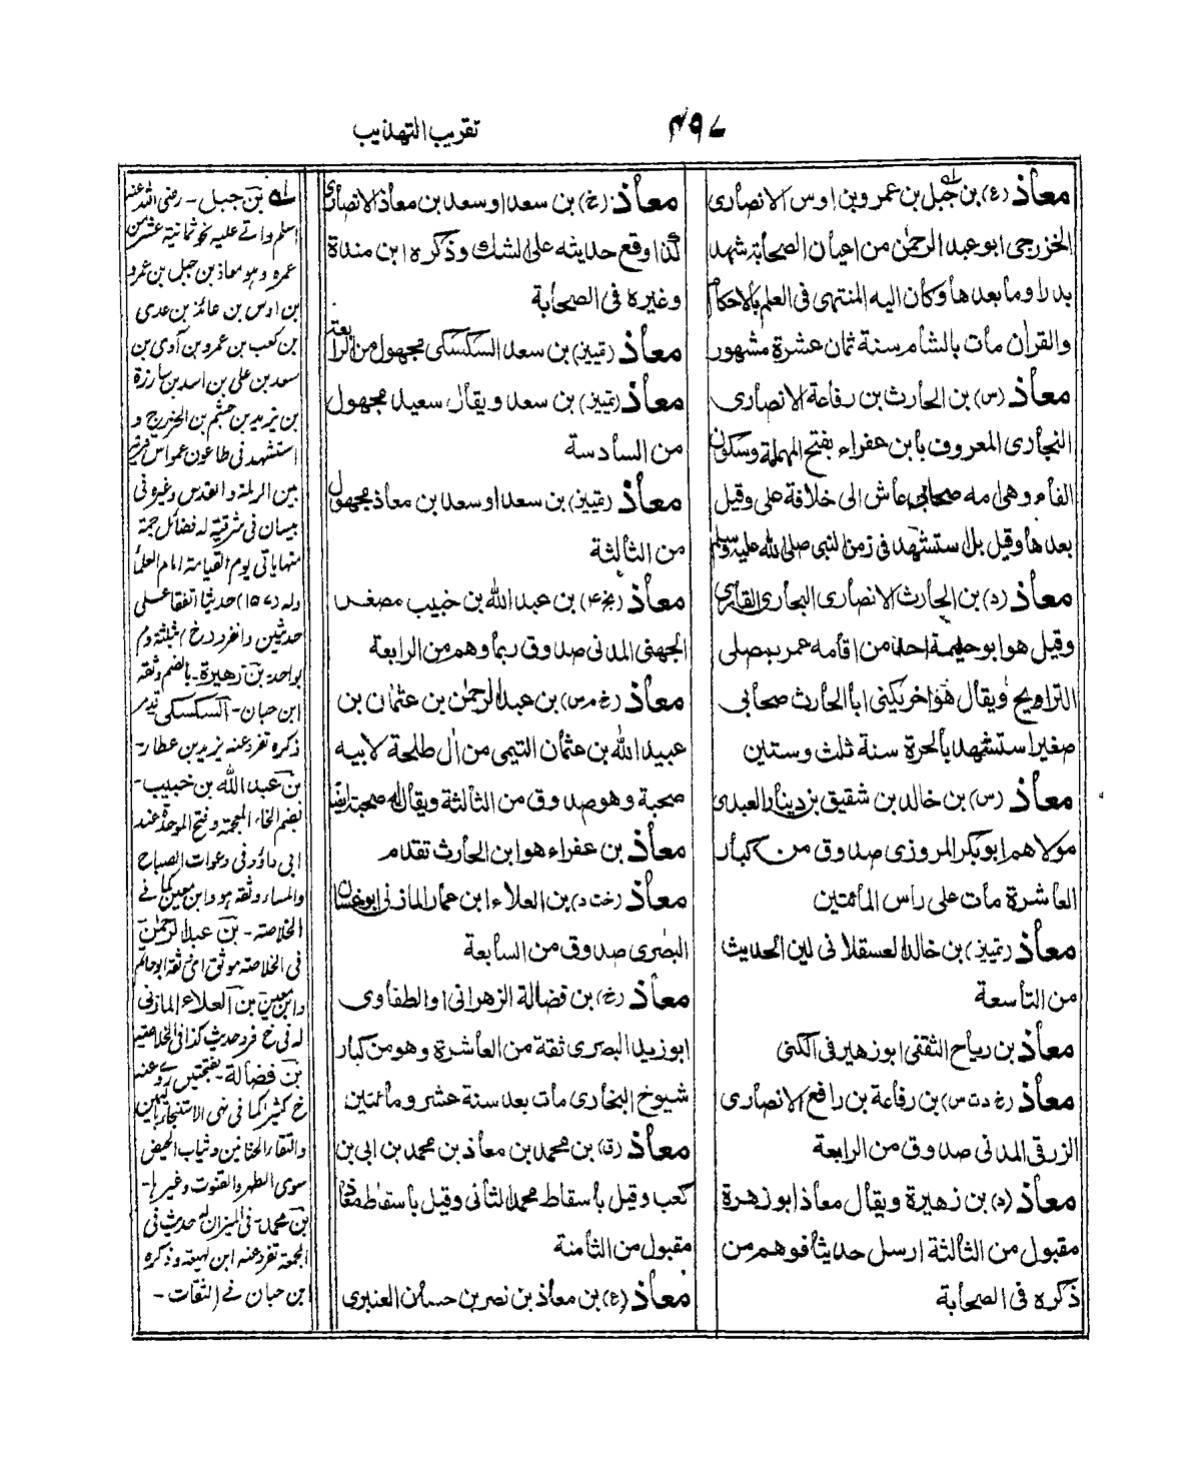 تقريب التهذيب
٤٩٧
معاذ (ع) بن جبل بن عمرو بن اوس الانصارى
الخزرجى ابو عبد الرحمٰن من اعيان الصحابة شهد
بدرا وما بعدها وكان اليه المنتهى فى العلم بالاحكام
والقرآن مات بالشام سنة ثمان عشرة مشهور
معاذ (س) بن الحارث بن رفاعة الانصارى
النجارى المعروف بابن عفراء بفتح المهملة وسكون
الفاء وهى امه صحابى عاش الى خلافة على وقيل
بعدها وقيل بل استشهد فى زمن النبى صلى الله عليه وسلم
معاذ (د) بن الحارث الانصارى النجارى القارى
وقيل هو ابو حليمة احد من اقامه عمر يصلى
التراويح ويقال هو اخر يكنى ابا الحارث صحابى
صغير استشهد بالحرة سنة ثلث وستين
معاذ (س) بن خالد بن شقيق بن دينار العبدى
مولاهم ابو بكر المروزى صدوق من كبار
العاشرة مات على راس المائتين
معاذ (تمييز) بن خالد العسقلانى لين الحديث
من التاسعة
معاذ بن رياح الثقفى ابو زهير فى الكنى
معاذ (خ د ت س) بن رفاعة بن رافع الانصارى
الزرقى المدنى صدوق من الرابعة
معاذ (د) بن زهيرة ويقال معاذ ابو زهرة
مقبول من الثالثة ارسل حديثا فوهم من
ذكره فى الصحابة
معاذ (خ) بن سعد او سعد بن معاذ الانصارى
كذا وقع حديثه على الشك وذكره ابن مندة
وغيره فى الصحابة
معاذ (تمييز) بن سعد السكسكى مجهول من الرابعة
معاذ (تمييز) بن سعد ويقال سعيد مجهول
من السادسة
معاذ (تمييز) بن سعد او سعد بن معاذ مجهول
من الثالثة
معاذ (بخ ٤) بن عبد الله بن خبيب مصغر
الجهنى المدنى صدوق ربما وهم من الرابعة
معاذ (خ م س) بن عبد الرحمٰن بن عثمان بن
عبيد الله بن عثمان التيمى من اٰل طلحة لابيه
صحبة وهو صدوق من الثالثة ويقال له صحبة ايضا
معاذ بن عفراء هو ابن الحارث تقدم
معاذ (خت د) بن العلاء ابن عمار المازنى ابو غسان
البصرى صدوق من السابعة
معاذ (خ) بن فضالة الزهرانى او الطفاوى
ابو زيد البصرى ثقة من العاشرة وهو من كبار
شيوخ البخارى مات بعد سنة عشر ومائتين
معاذ (ق) بن محمد بن معاذ بن محمد بن ابى بن
كعب وقيل باسقاط محمد الثانى وقيل باسقاط معاذ
مقبول من الثامنة
معاذ (ع) بن معاذ بن نصر بن حسان العنبرى
له بن جبل - رضى الله عنه
اسلم واتے عليه نحو ثمانية عشر من
عمره وہو معاذ بن جبل بن عمرو
بن اوس بن عائذ بن عدى
بن كعب بن عمرو بن آدى بن
سعد بن على بن اسد بن ساردة
بن يزيد بن جشم بن الخزرج و
استشهد فى طاعون عمواس
بين الرملة والقدس وغيره فى
بيسان فى شرقيه له فضائل جمة
منها ياتى يوم القيامة امام العلماء
وله (١٥٧) حديثا اتفقا على
حديثين وانفرد (خ) بثلثة و م
بواحد بن زهيرة - بالضم وثقه
ابن حبان - السكسكى
ذكره تفرد عنه يزيد بن عطار -
بن عبد الله بن خبيب -
بضم الخاء المعجمة وفتح الموحدة عند
ابى داؤد فى دعوات الصباح
والمساء وثقه هو وابن معين كما فے
الخلاصة - بن عبد الرحمٰن
فى الخلاصة موثق ثقة ابو حاتم
وابن معين بن العلاء المازنى
له فى خ فرد حديث كذا فى الخلاصة
بن فضالة - بفتحتين روى عنه
خ كثيرا كما فى نهى الاستنجاء باليمين
والتقاء الختانين وثياب الحيض
سوى الطهر والقنوت وغيرها -
بن محمد - فى الميزان له حديث فى
الجمعة تفرد عنه ابن لهيعة وذكره
ابن حبان فے الثقات -